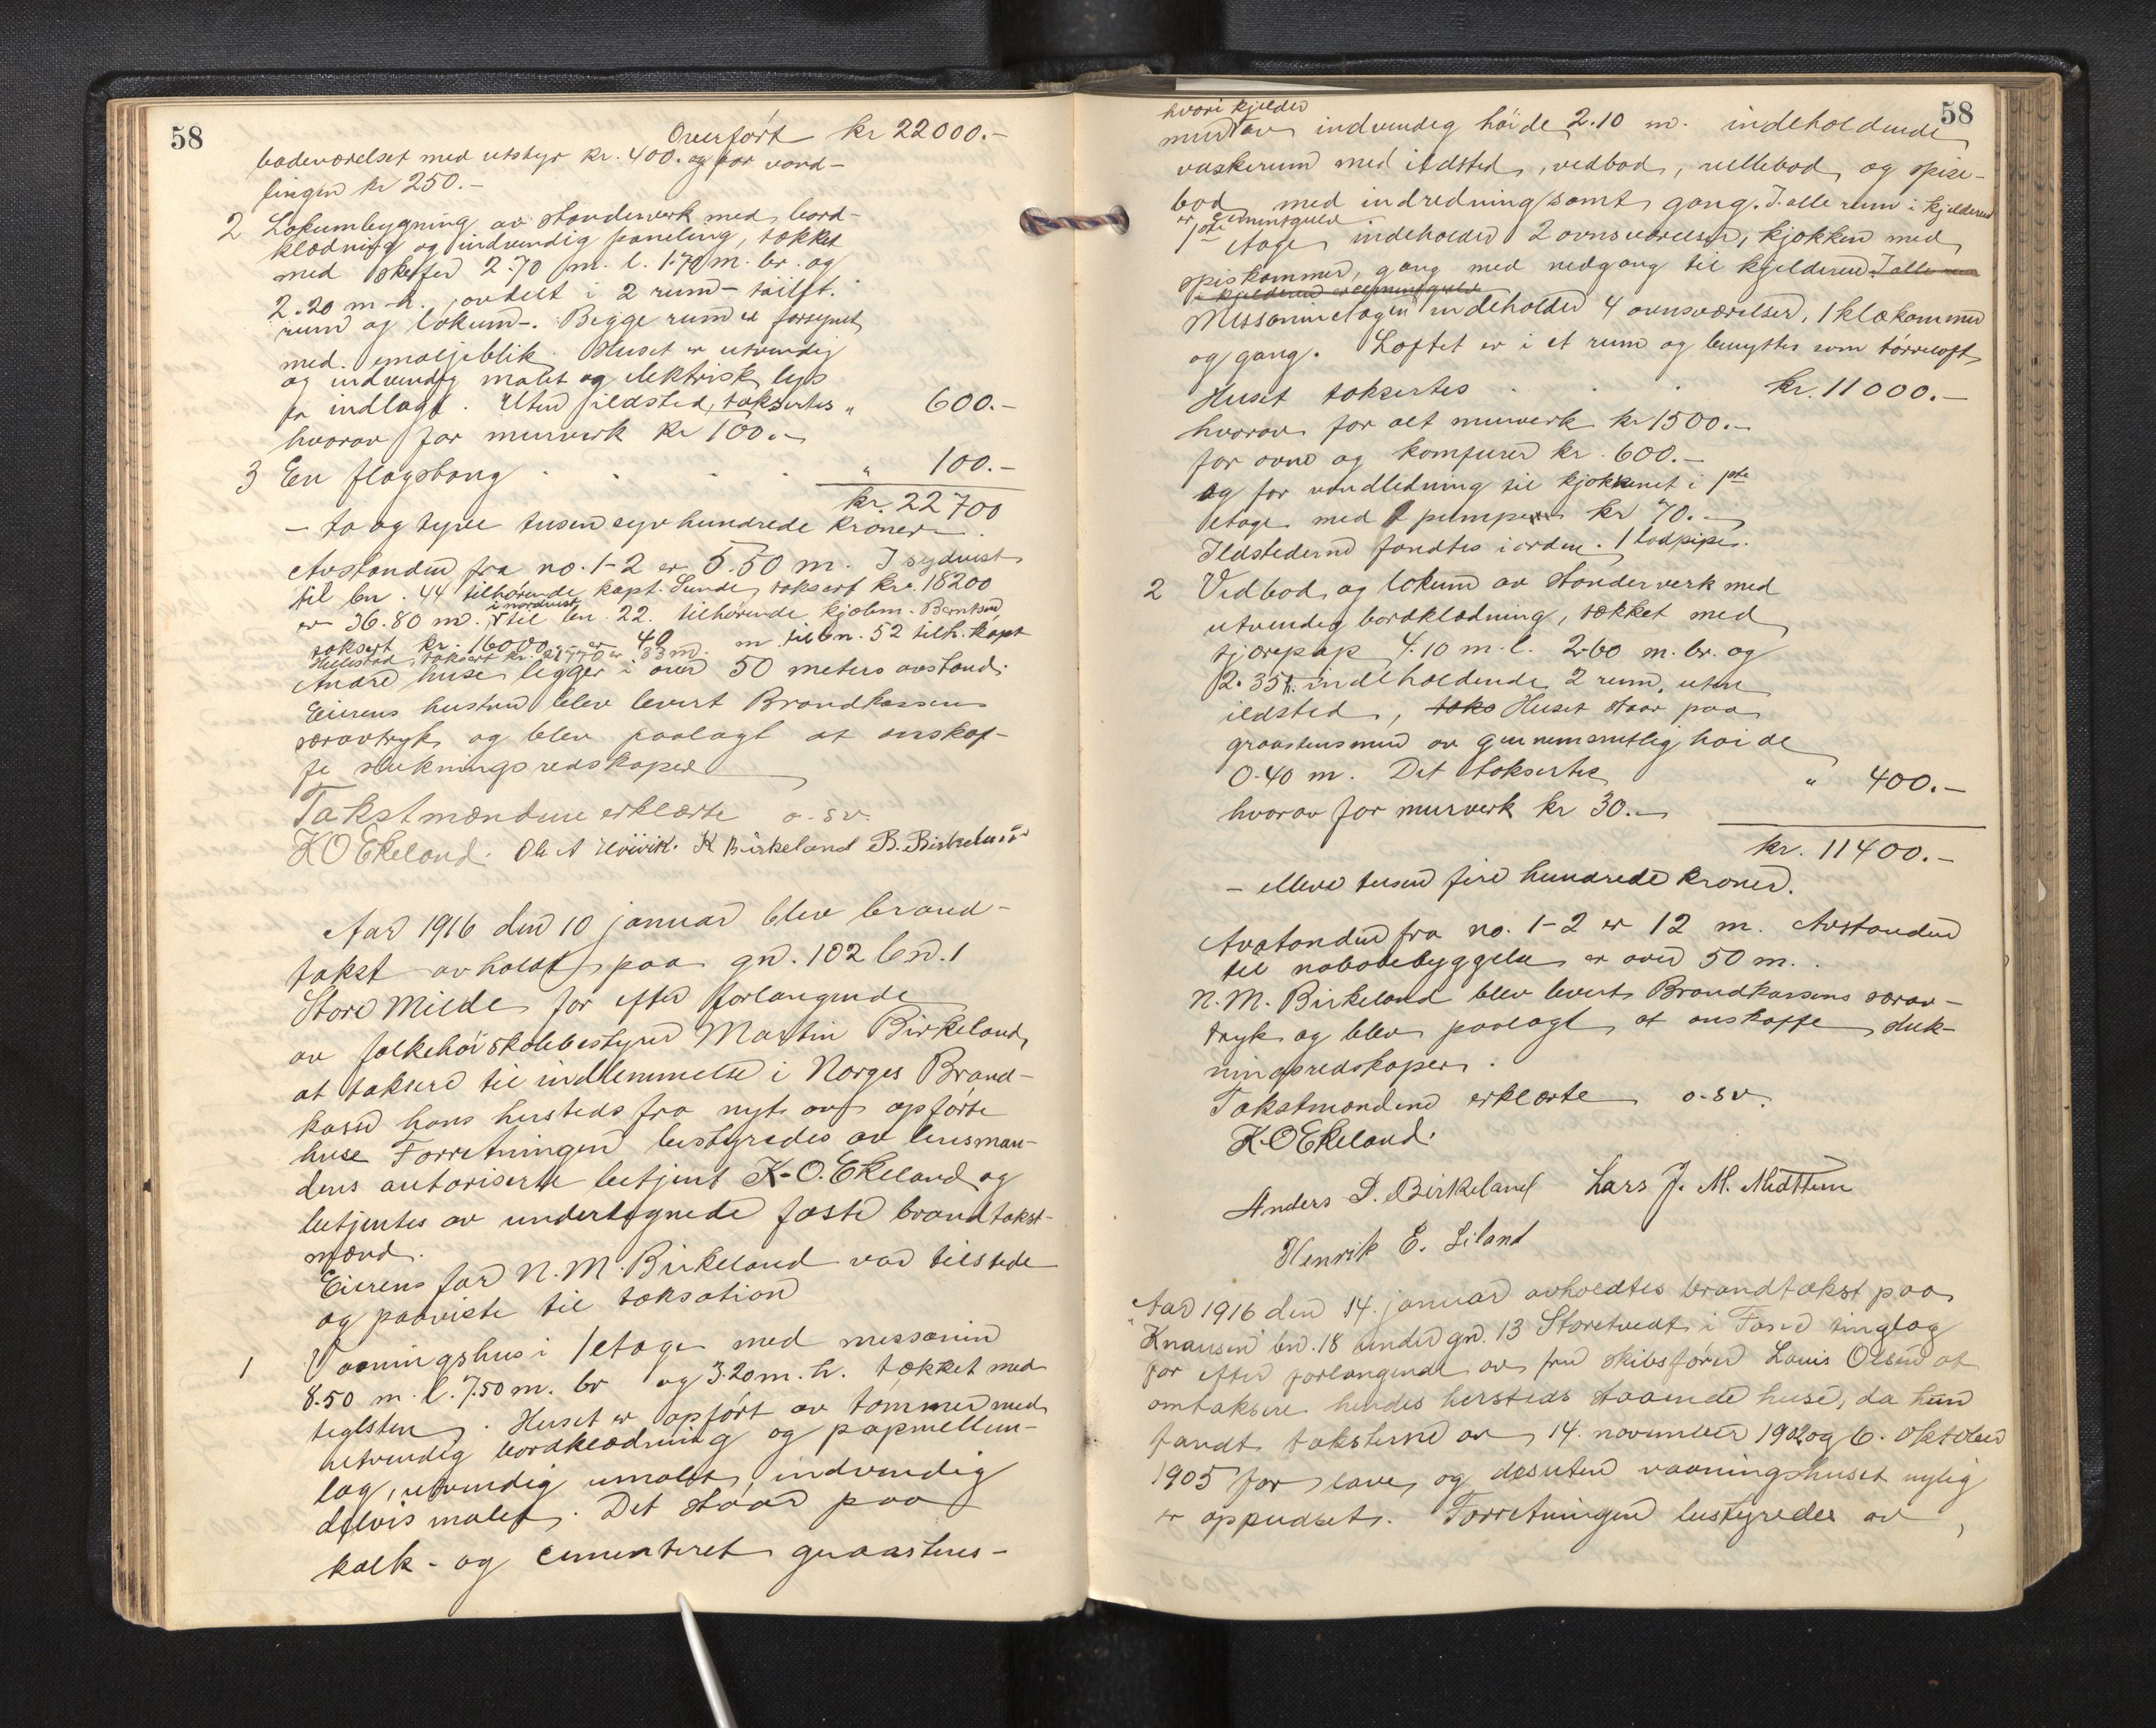 58
Overført kr 22000.-
badeværelset med utstyr kr. 400. og for vand-
lingen kr 250.-
2 Lokumbygning av standerverk med bord-
klædning og indvendig paneling, tækket
med skifer 2.70 m. l. 1.70 m. br. og
2.20 m. h., avdelt i 2 rum - toilt.
rum og lokum-. Begge rum er forsynet
med emaljeblik. Huset er utvendig
og indvendig malet og elektrisk lys
er indlagt. Uten ildsted, taksertes " 600.-
hvorav for murverk kr 100.-
3 En flagstang . . . " 100.-
kr. 22700
- to og tyve tusen syv hundrede kroner -.
Avstanden fra no. 1-2 er 5.50 m. I sydvest
til bn. 44 tilhørende kapt. Sunde, taksert kr. 18200
er 36.80 m. i nordvest til bn. 22. tilhørende kjøbm. Berntsen
taksert kr. 16000 er 40 m til bn. 52 tilh. kapt
Hellestad, taksert kr. 21770 er 33 m.
Andre huse ligger i over 50 meters avstand.
Eierens hustru blev levert Brandkassens
særavtryk og blev paalagt at anskaf-
fe slukningsredskaper
Takstmændene erklærte o.sv.
K O Ekeland. Ole A K Birkeland B. Birkeland
Aar 1916 den 10 januar blev brand-
takst avholdt paa gn. 102 bn. 1
Store Milde for efter forlangende
av folkehöiskolebestyrer Martin Birkeland
at taksere til indlemmelse i Norges Brand-
kasse hans hersteds fra nyt av opførte
huse Forretningen bestyredes av lensman-
dens autoriserte betjent K. O. Ekeland og
betjentes av undertegnede faste brandtakst-
mænd.
Eierens far N. M. Birkeland var tilstede
og paaviste til taksation
1 Vaaningshus i 1 etage med messanin
8.50 m. l. 7.50 m. br og 3.20 m. h. tækket med
teglsten. Huset er opført av tømmer med
utvendig bordklædning og papmellem-
lag, utvendig umalet, indvendig
delvis malet. Det staar paa
kalk- og cementeret graastens-
58
hvori kjelder
mur av indvendig høide 2.10 m. indeholdende
vaskerum med ildsted, vedbod, rullebod og spise-
bod med indredning samt gang. I alle rum i kjelderen
er cementgulv
1ste etage indeholder 2 ovnsværelser, kjøkken med
spiskammer, gang med nedgang til kjelderen. I alle rum
i kjelderen er cementgulv
Messaninetagen indeholder 4 ovnsværelser, 1 klækammer
og gang. Loftet er i et rum og benyttes som tørreloft
Huset taksertes . . . kr. 11000.-
hvorav for alt murverk kr 1500.-
for ovne og komfurer kr. 600.-
og for vandledning til kjøkkenet i 1ste
etage med 1 pumpe kr 70.-
Ildstederne fandtes i orden. 1 lodpipe.
2 Vedbod og lokum av standerverk med
utvendig bordklædning, tækket med
tjærepap 4.10 m. l. 2.60 m. br. og
2.35 h. indeholdende 2 rum, uten
ildsted, taks Huset staar paa
graastensmur av gjennemsnitlig høide
0.40 m. Det taksertes " 400.-
hvorav for murverk kr 30.-
kr. 11400.-
- elleve tusen fire hundrede kroner.
Avstanden fra no. 1-2 er 12 m. Avstanden
til nabobebyggelse er over 50 m.
N. M. Birkeland blev levert Brandkassens særav-
tryk og blev paalagt at anskaffe sluk-
ningsredskaper.
Takstmændene erklærte o.sv.
K. O Ekeland.
Anders D. Birkeland Lars J. M. Midttun
Henrik E. Liland
Aar 1916 den 14. januar avholdtes brandtakst paa
"Knausen" bn. 18 under gn. 13 Storetvedt i Fane tinglag
for efter forlangende av fru skibsfører Louis Olsen at
omtaksere hendes hersteds staaende huse, da hun
fandt taksterne av 14. november 1902 og 6. oktober
1905 for lave og desuten vaaningshuset nylig
er oppudset. Forretningen bestyredes av